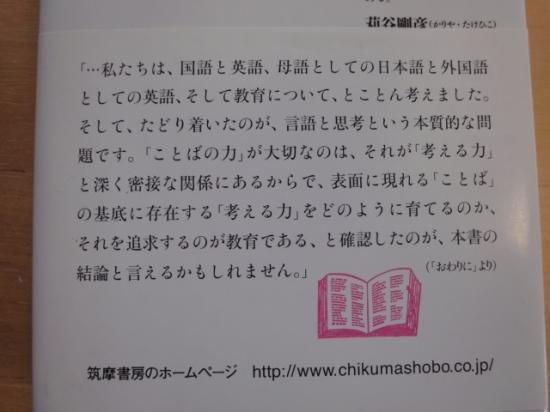 苅谷剛彦(かりや・たけひこ)
「…私たちは、国語と英語、母語としての日本語と外国語
としての英語、そして教育について、とことん考えました。
そして、たどり着いたのが、言語と思考という本質的な問
題です。「ことばの力」が大切なのは、それが「考える力」
と深く密接な関係にあるからで、表面に現れる「ことば」
の基底に存在する「考える力」をどのように育てるのか、
それを追求するのが教育である、と確認したのが、本書の
結論と言えるかもしれません。」
(「おわりに」より)
筑摩書房のホームページ http://www.chikumashobo.co.jp/